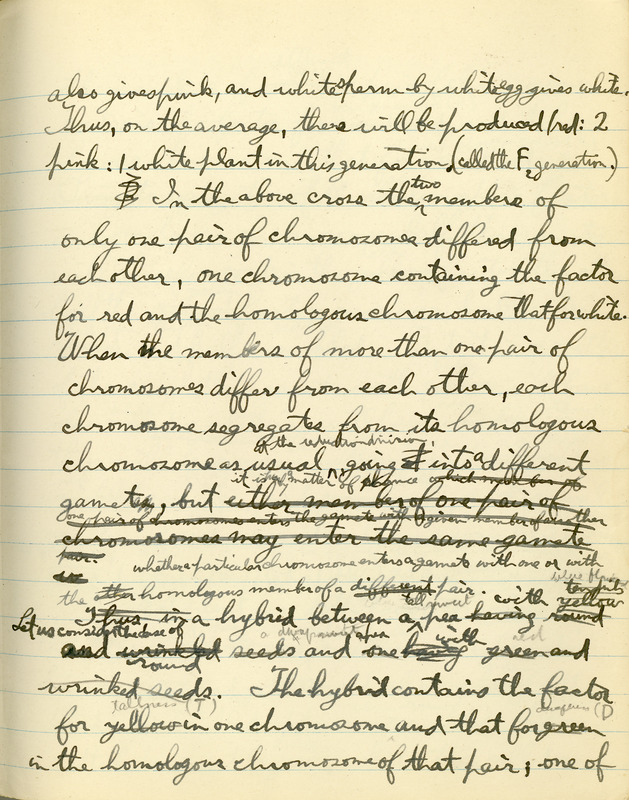 also gives pink, and white sperm by white egg gives white.
Thus, on the average, there will be produced 1 red : 2
pink : 1 white plant in this generation, (called the F2 generation.)
In the above cross the two members of
only one pair of chromosomes differed from
each other, one chromosome containing the factor
for red and the homologous chromosome that for white.
When the members of more than one pair of
chromosomes differ from each other, each
chromosome segregates from its homologous
at the reduction division,
chromosome as usual, going into a different
it is a matter of chance
gamete, but either member of one pair of
one pair of chromosomes enters the gamete with a given member of another
chromosomes may enter the same gamete
pair.
whether a particular chromosome enters a gamete with one or with
the other homologous member of a different pair. with
yellow
Thus in a hybrid between a pea having round
Let us consider the case of
and wrinkled seeds and one having with green and
round
wrinkled seeds. The hybrid contains the factor
tallness (T)
for yellow in one chromosome and that for green
in the homologous chromosome of that pair; one of